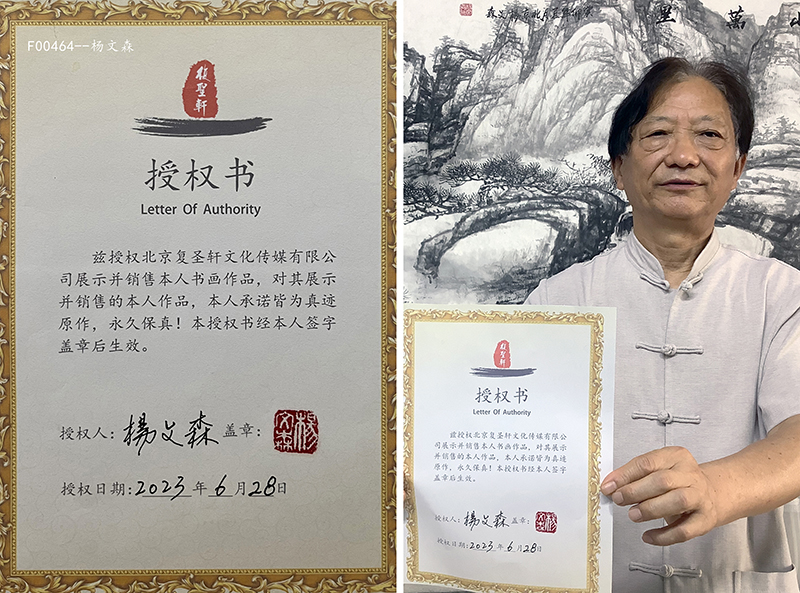 F00464--杨文森
復聖軒
授权书
Letter Of Authority
兹授权北京复圣轩文化传媒有限公
司展示并销售本人书画作品，对其展示
并销售的本人作品，本人承诺皆为真迹
原作，永久保真！本授权书经本人签字
盖章后生效。
授权人：楊文森 盖章：楊文森
授权日期：2023年6月28日
萬里
復聖軒
授权书
Letter Of Authority
兹授权北京复圣轩文化传媒有限公
司展示并销售本人书画作品，对其展示
并销售的本人作品，本人承诺皆为真迹
原作，永久保真！本授权书经本人签字
盖章后生效。
授权人：楊文森 盖章：楊文森
授权日期：2023年6月28日